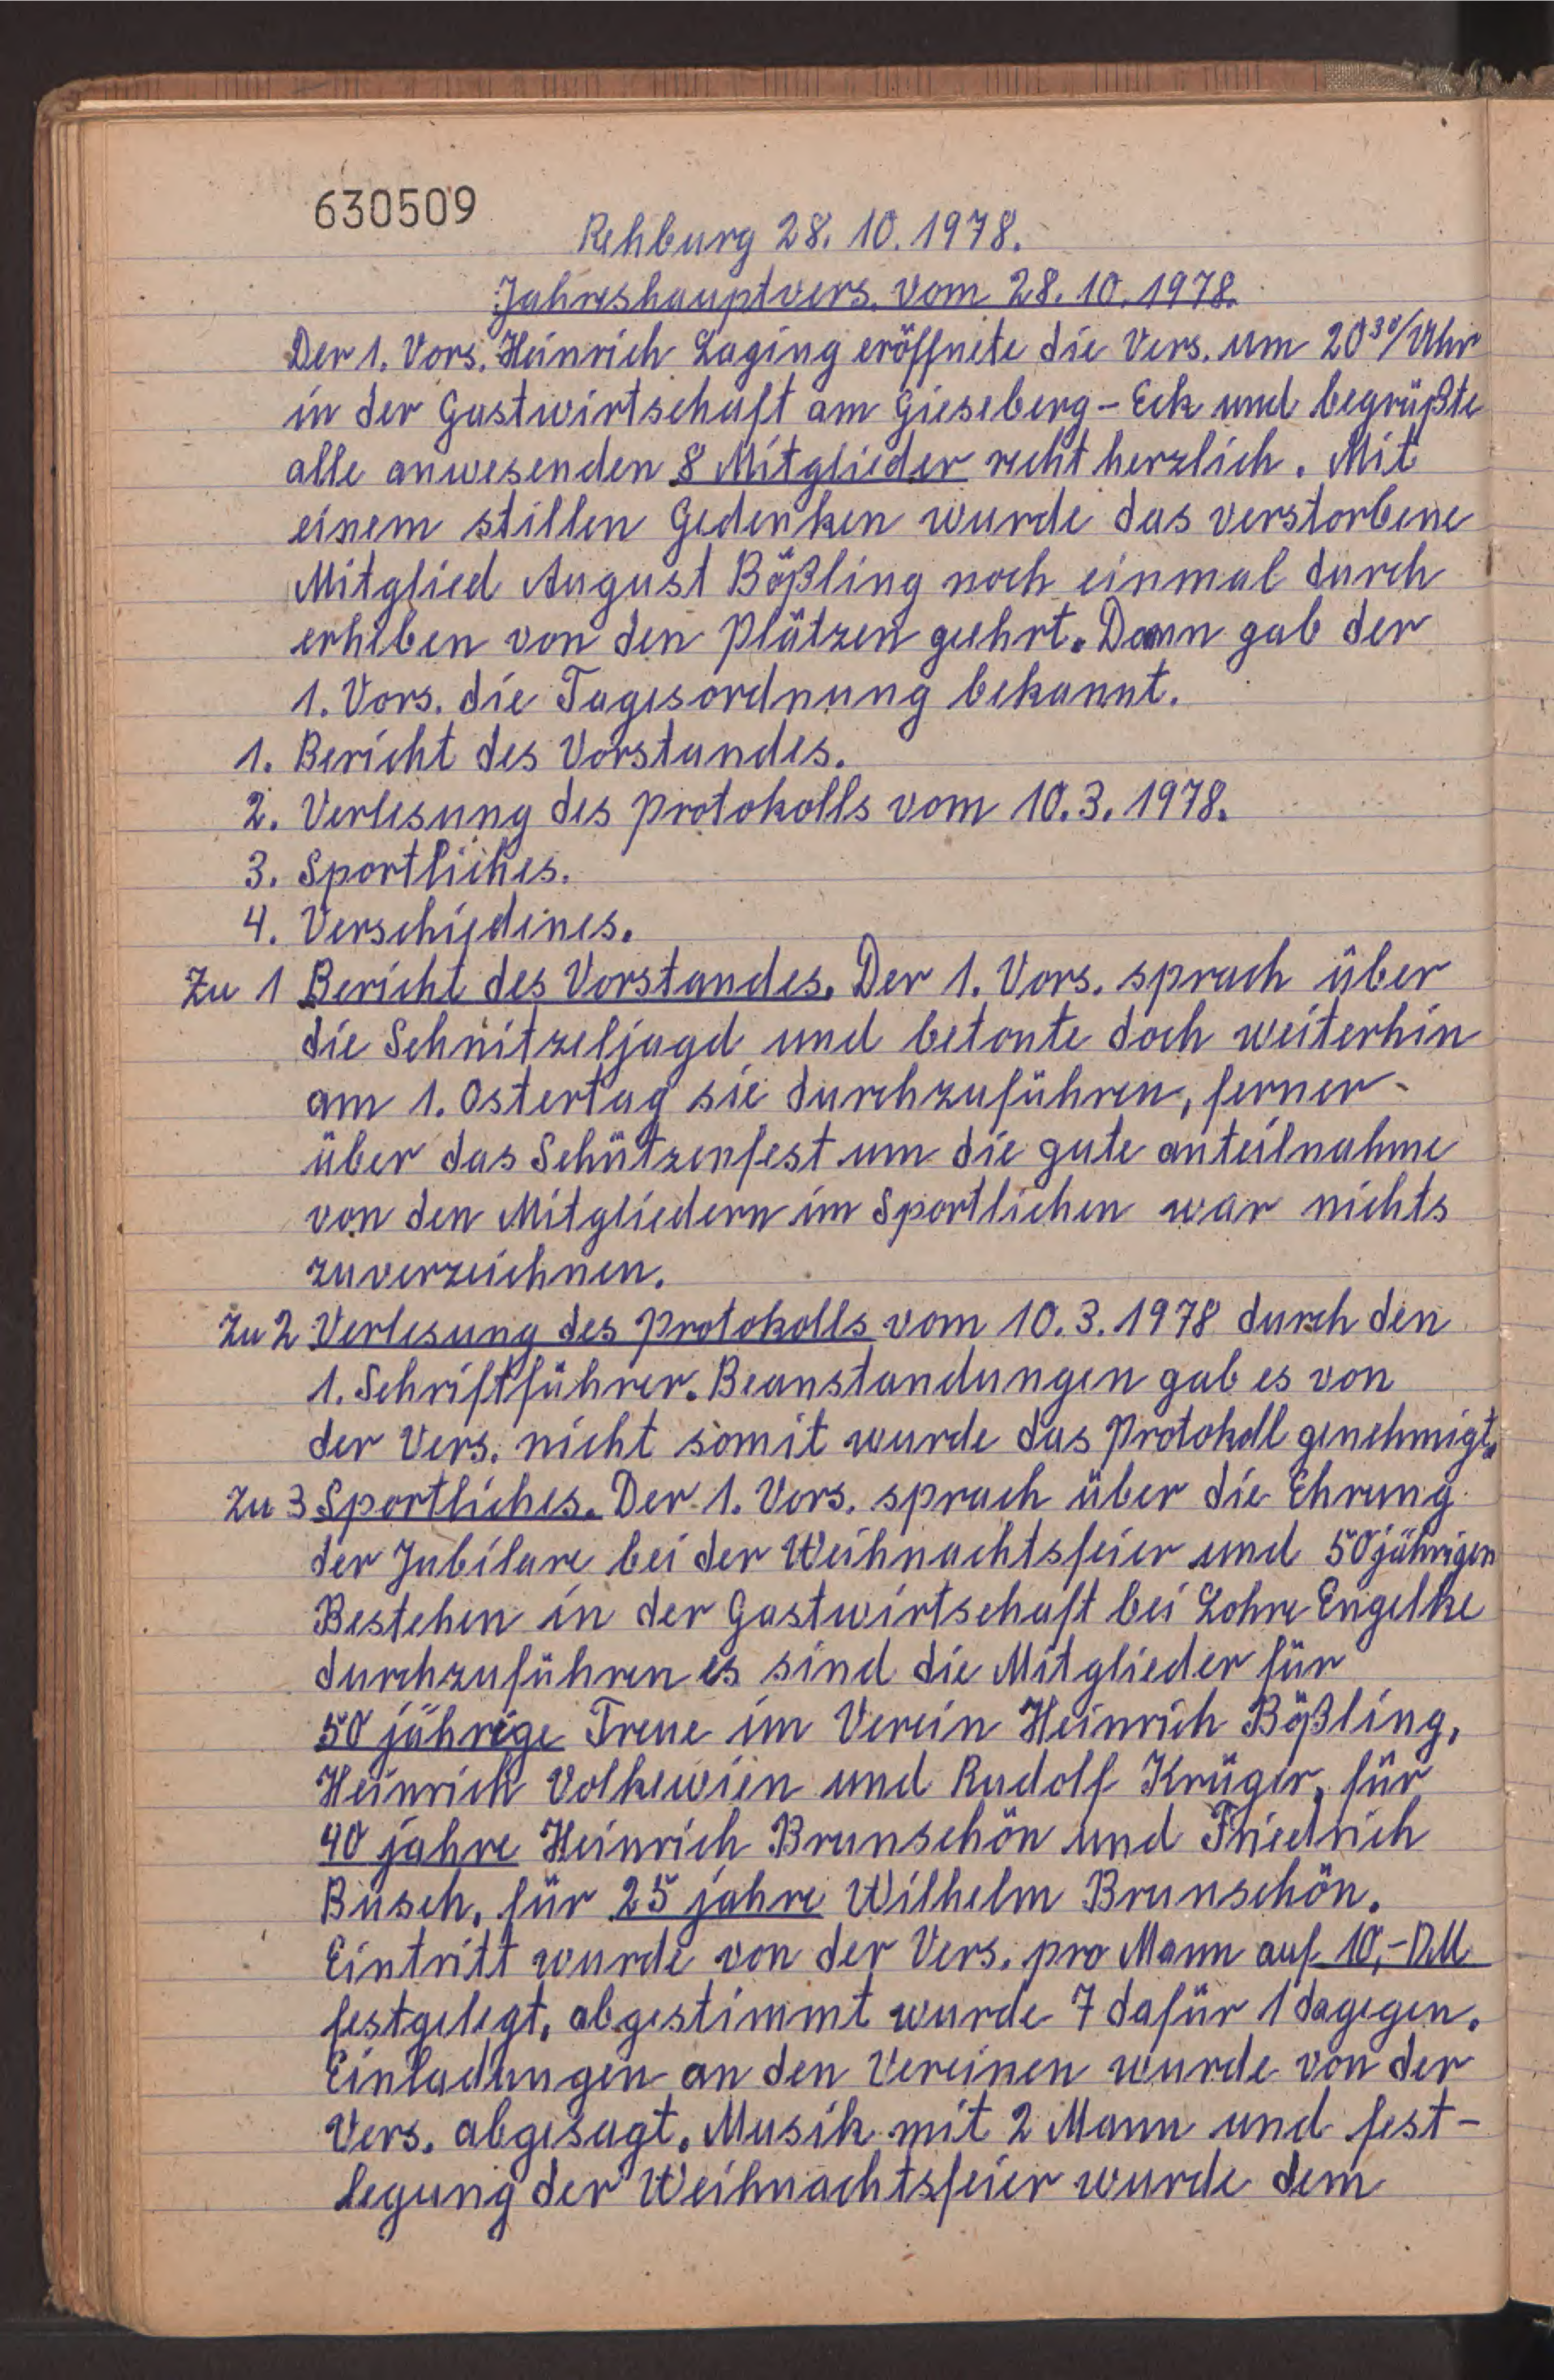 630509
Rehburg 28. 10. 1978.
Jahreshauptvers. vom 28. 10. 1978.
Der 1. Vors. Heinrich Laging eröffnete die Vers. um 20³⁰/Uhr
in der Gastwirtschaft am Gieseberg-Eck und begrüßte
alle anwesenden 8 Mitglieder recht herzlich. Mit
einem stillen Gedenken wurde das verstorbene
Mitglied August Bößling noch einmal durch
erheben von den Plätzen geehrt. Dann gab der
1. Vors. die Tagesordnung bekannt.
1. Bericht des Vorstandes.
2. Verlesung des Protokolls vom 10. 3. 1978.
3. Sportliches.
4. Verschiedenes.
Zu 1 Bericht des Vorstandes. Der 1. Vors. sprach über
die Schnitzeljagd und betonte doch weiterhin
am 1. Ostertag sie durchzuführen, ferner
über das Schützenfest um die gute anteilnahme
von den Mitgliedern im Sportlichen war nichts
zuverzeichnen.
Zu 2 Verlesung des Protokolls vom 10. 3. 1978 durch den
1. Schriftführer. Beanstandungen gab es von
der Vers. nicht somit wurde das Protokoll genehmigt.
Zu 3 Sportliches. Der 1. Vors. sprach über die Ehrung
der Jubilare bei der Weihnachtsfeier und 50jährigen
Bestehen in der Gastwirtschaft bei Lohre Engelke
durchzuführen es sind die Mitglieder für
50 jährige Treue im Verein Heinrich Bößling,
Heinrich Volkewien und Rudolf Krüger, für
40 jahre Heinrich Brunschön und Friedrich
Busch, für 25 jahre Wilhelm Brunschön.
Eintritt wurde von der Vers. pro Mann auf 10,- DM
festgelegt, abgestimmt wurde 7 dafür 1 dagegen.
Einladungen an den Vereinen wurde von der
Vers. abgesagt. Musik mit 2 Mann und fest-
legung der Weihnachtsfeier wurde dem